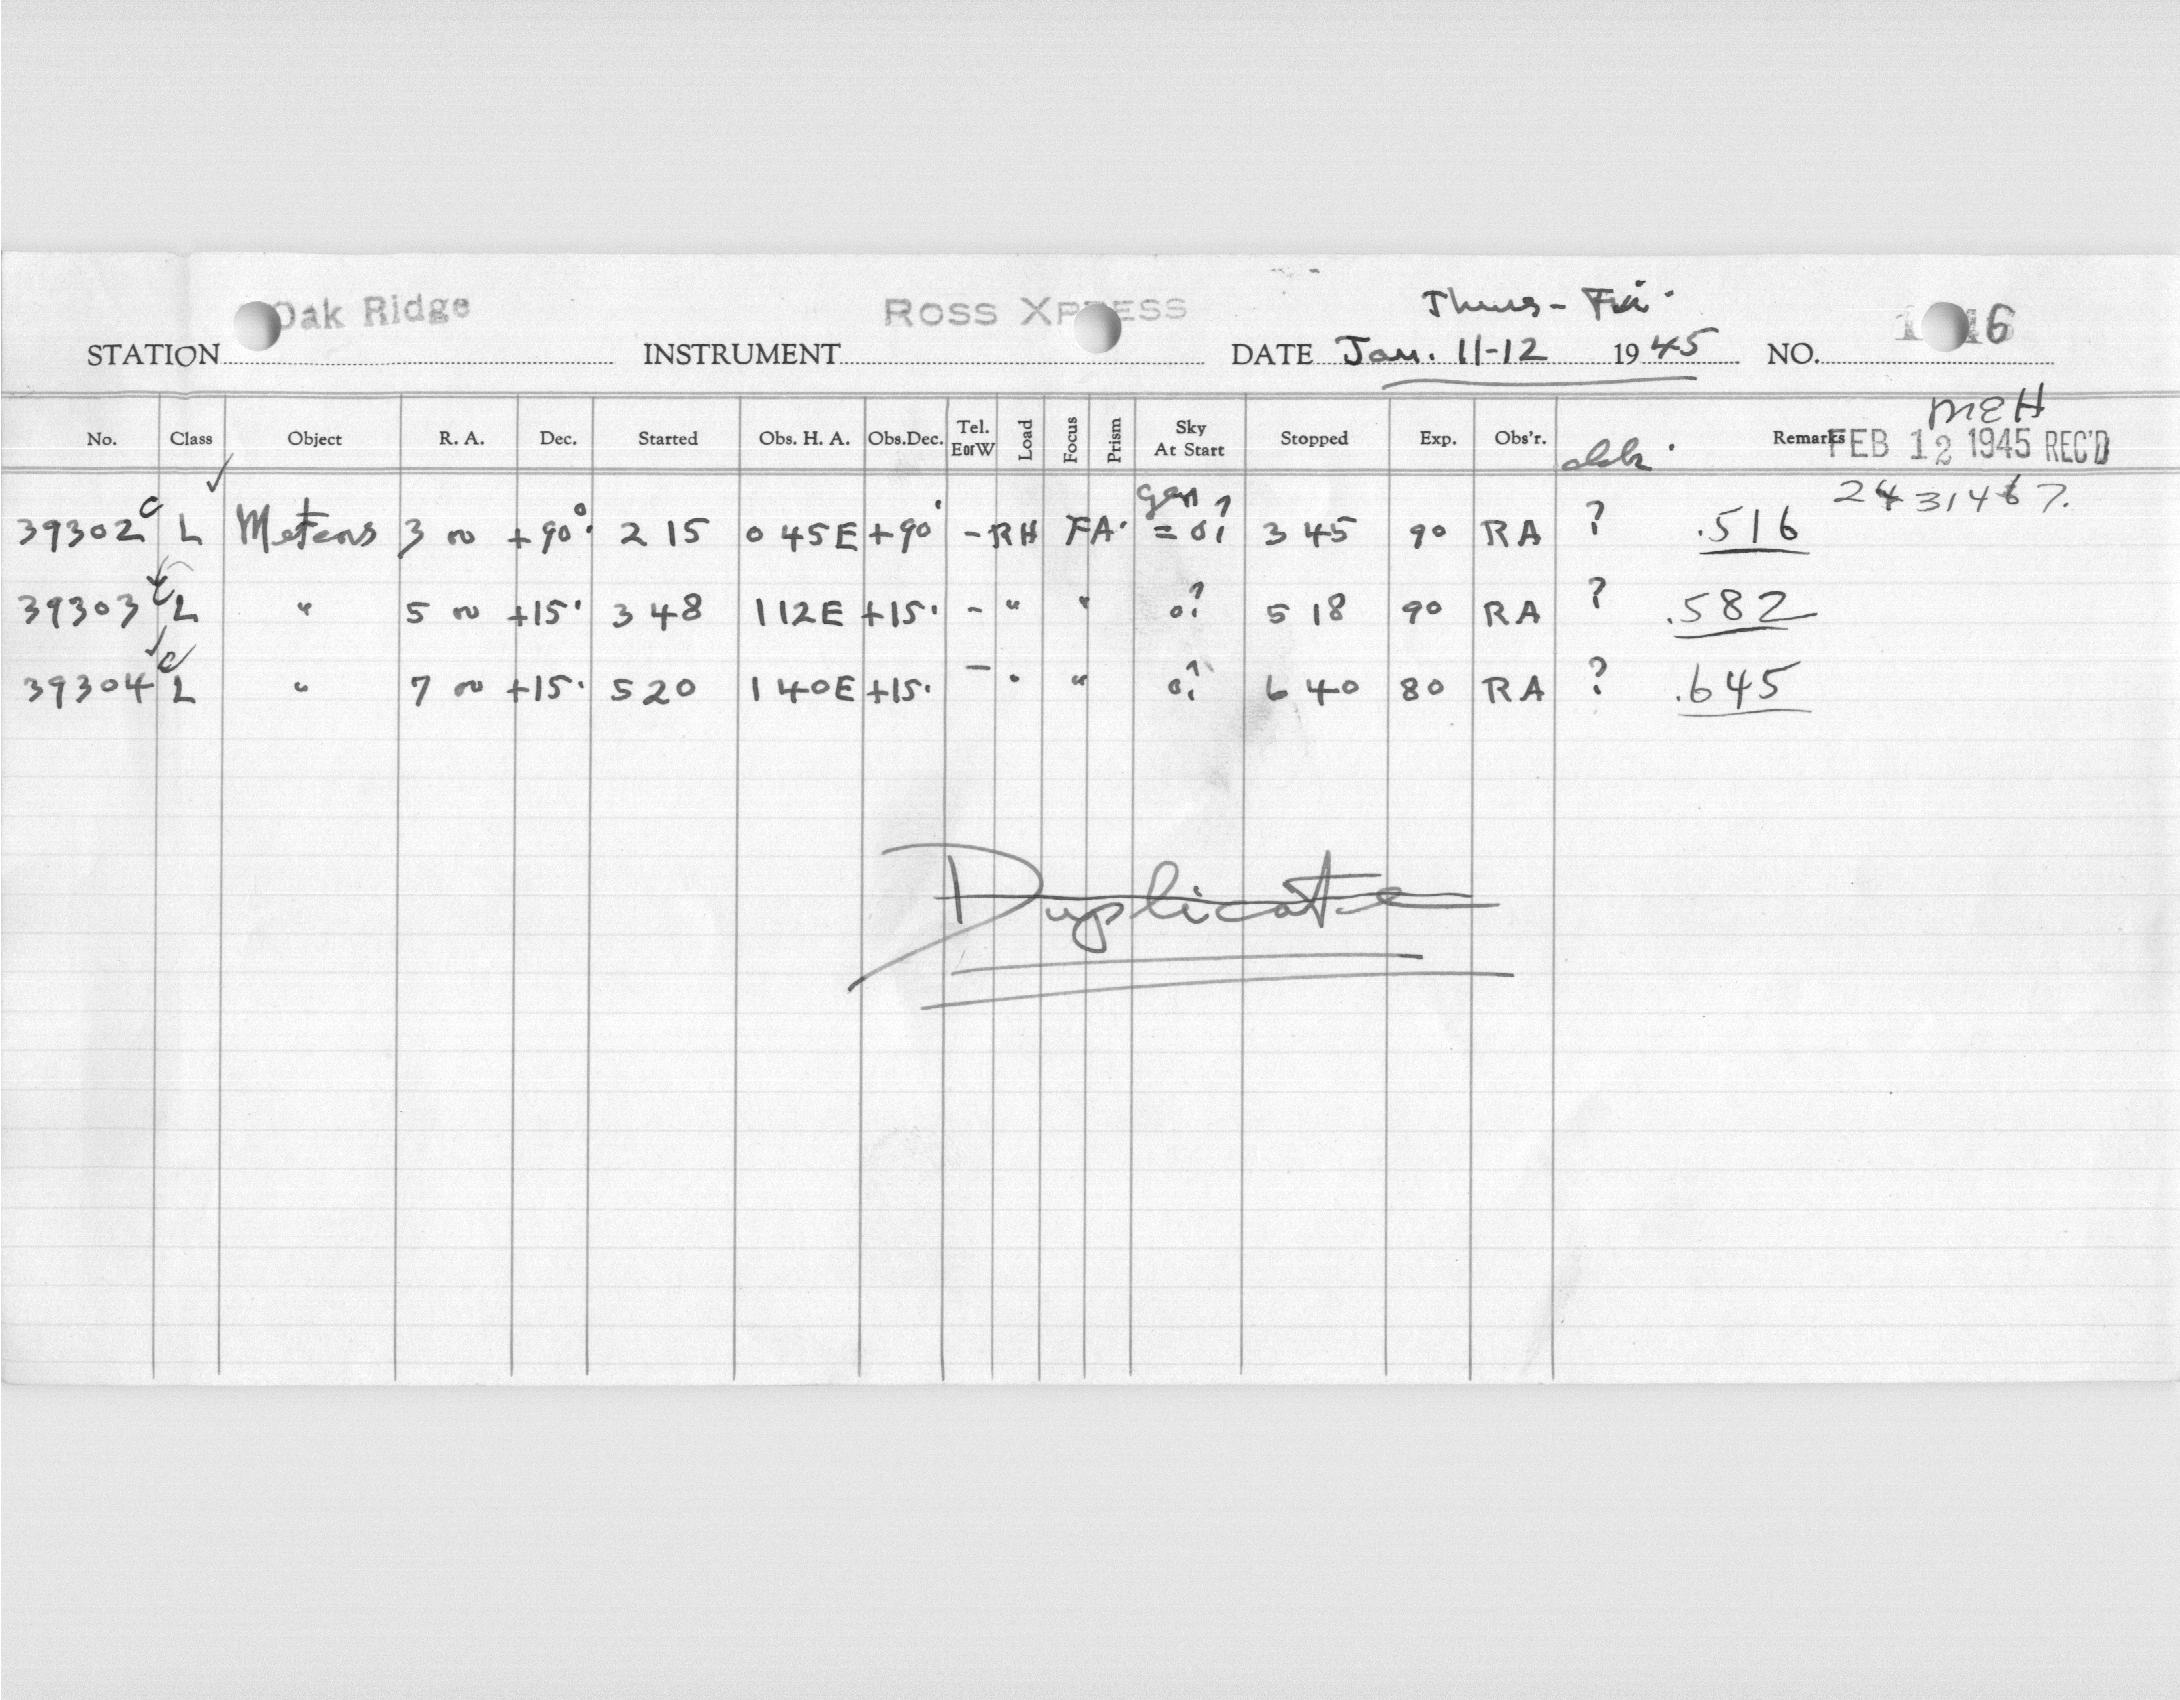 Oak Ridge ROSS XPRESS Thurs - Fri.
STATION INSTRUMENT DATE Jan. 11-12 1945 NO. 6
MEH
No. Class Object R. A. Dec. Started Obs. H. A. Obs.Dec. Tel. E or W Load Focus Prism Sky At Start Stopped Exp. Obs'r. Remarks FEB 12 1945 REC'D
2431467.
39302 c L Meteors 3 00 +90° 2 15 0 45E +90° - RH FA. = 0? 3 45 90 RA ? .516
39303 c L " 5 00 +15° 3 48 1 12E +15° - " " 0? 5 18 90 RA ? .582
39304 c L " 7 00 +15° 5 20 1 40E +15° - " " 0? 6 40 80 RA ? .645
Duplicate